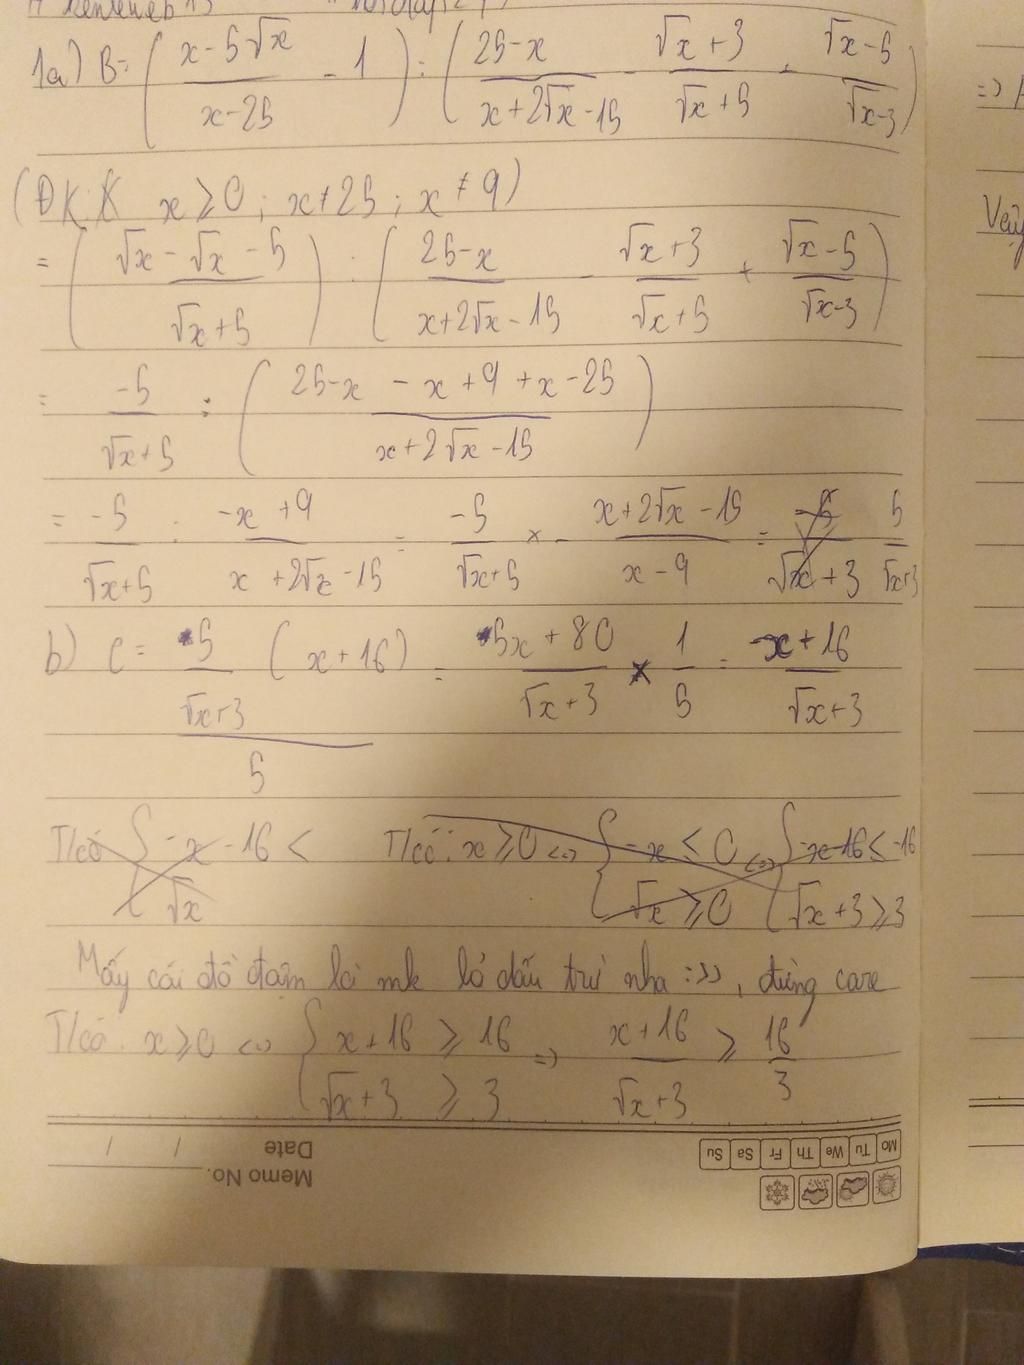 1a) B = ( (x - 5√x)/(x - 25) - 1 ) : ( (25 - x)/(x + 2√x - 15) - (√x + 3)/(√x + 5) + (√x - 5)/(√x - 3) )
(ĐK: x ≥ 0 ; x ≠ 25 ; x ≠ 9)
= ( (√x - √x - 5)/(√x + 5) ) : ( (25 - x)/(x + 2√x - 15) - (√x + 3)/(√x + 5) + (√x - 5)/(√x - 3) )
= -5/(√x + 5) : ( (25 - x - x + 9 + x - 25)/(x + 2√x - 15) )
= -5/(√x + 5) : (-x + 9)/(x + 2√x - 15) = -5/(√x + 5) × - (x + 2√x - 15)/(x - 9) = 5/(√x + 3)
b) C = (5/(√x + 3) (x + 16))/5 = (5x + 80)/(√x + 3) × 1/5 = (x + 16)/(√x + 3)
T/có { -x - 16 < T/có : x ≥ 0 <=> { -x ≤ 0 <=> { -x - 16 ≤ -16
{ √x { √x ≥ 0 { √x + 3 ≥ 3
Mấy cái đồ đậm là mk bỏ dấu trừ nha :>>, đừng care
T/có : x ≥ 0 <=> { x + 16 ≥ 16 => (x + 16)/(√x + 3) ≥ 16/3
{ √x + 3 ≥ 3
=>
Vậy
Memo No.
Date / /
Mo Tu We Th Fr Sa Su